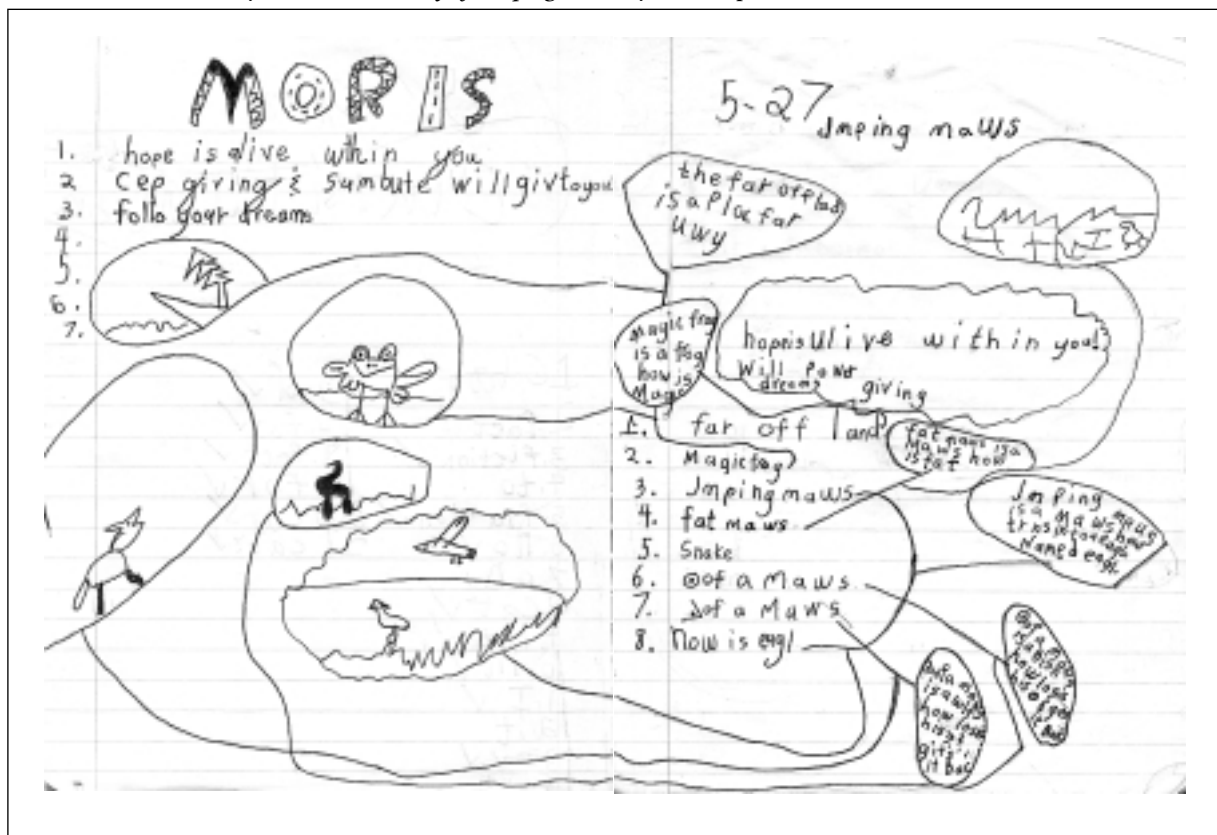 MORIS
1. hope is alive within you
2 Cep giving & Sumbute will giv to you
3. follo your dreams
4.
5.
6.
7.
5-27
Jmping maws
the far off lad
is a plac far
uwy
Magic frog
is a frog
how is
Magic
hope is Ulive with in you!
Will Power
dreams
giving
1. far off land
2. Magic fog
3. Jmping maws
4. fat maws
5. Snake
6. of a Maws
7. of a Maws
8. Now is eagl
fat maws is a
Maws how
is fat
Jmping maws
is a Maws how
Named eagl
of a
is a
how loss
his
it bac